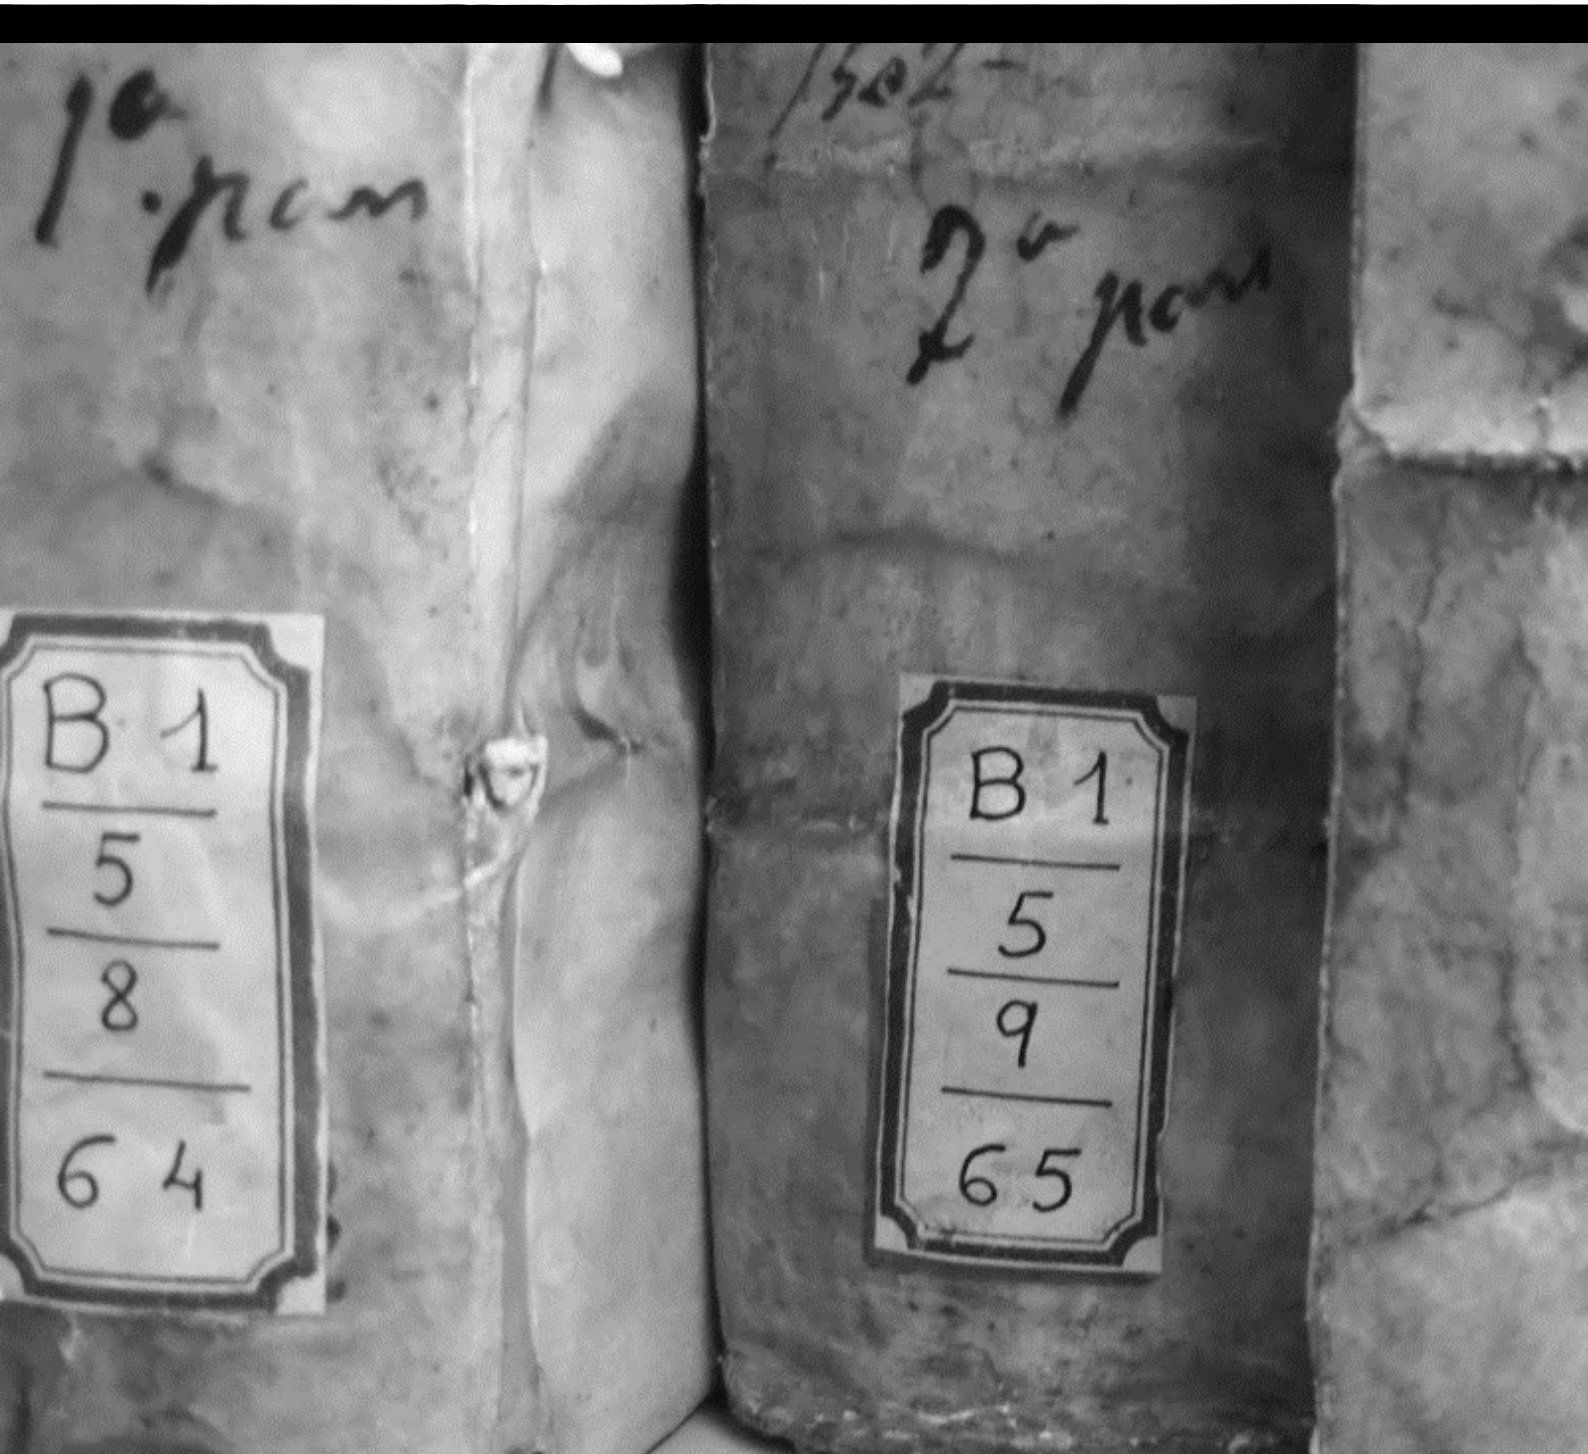 1a
pars
B 1
5
8
6 4
2a
pars
B 1
5
9
6 5